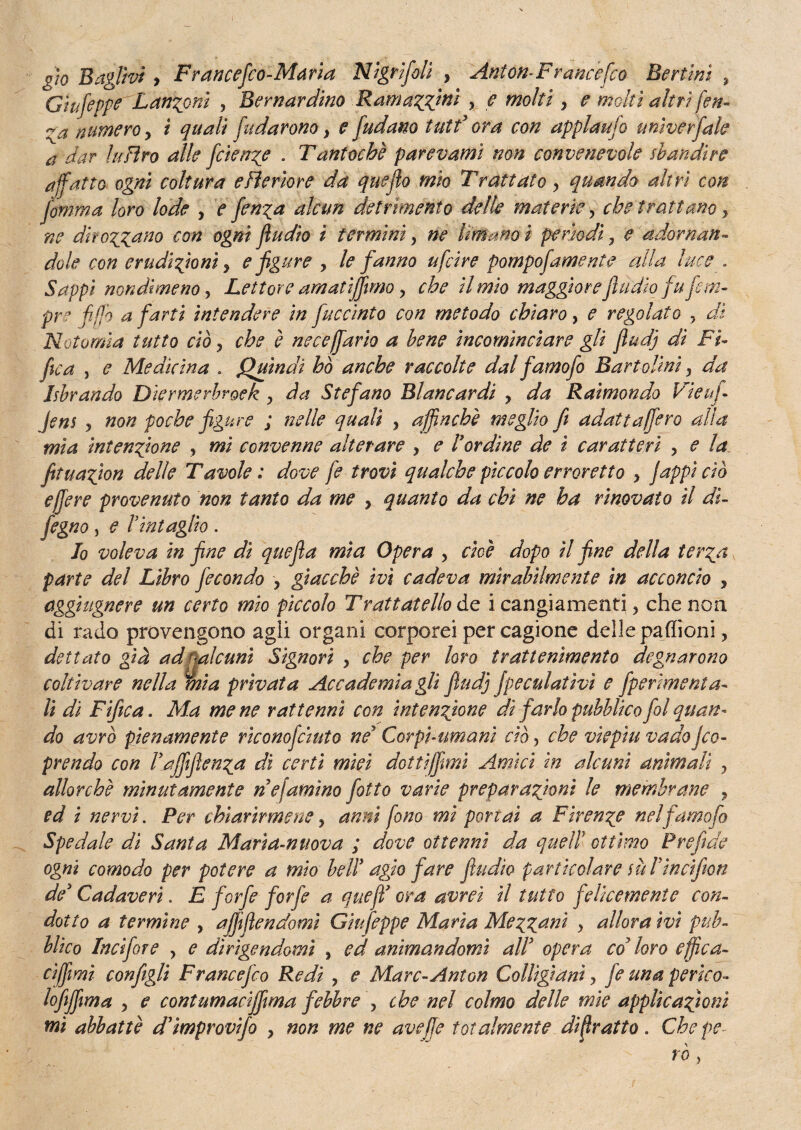 gio Baglivi, Francesco-Maria Nigrisoli, Anton-Francesco Bertini,
Giuseppe Lanzoni, Bernardino Ramazzini, e molti, e molti altri sen-
za numero, i quali sudarono, e sudano tutt' ora con applauso universale
a dar lustro alle scienze. Tantochè parevami non convenevole sbandire
affatto ogni coltura esteriore da questo mio Trattato, quando altri con
somma loro lode, e senza alcun detrimento delle materie, che trattano,
ne dirozzano con ogni studio i termini, ne limano i periodi, e adornan-
dole con erudizioni, e figure, le fanno uscire pomposamente alla luce.
Sappi nondimeno, Lettore amatissimo, che il mio maggiore studio fu sem-
pre fisso a farti intendere in succinto con metodo chiaro, e regolato, di
Notomia tutto ciò, che è necessario a bene incominciare gli studj di Fi-
sica, e Medicina. Quindi hò anche raccolte dal famoso Bartolini, da
Isbrando Diermerbroek, da Stefano Blancardi, da Raimondo Vieus-
sens, non poche figure; nelle quali, affinchè meglio si adattassero alla
mia intenzione, mi convenne alterare, e l'ordine de i caratteri, e la
situazion delle Tavole: dove se trovi qualche piccolo erroretto, sappi ciò
essere provenuto non tanto da me, quanto da chi ne ha rinovato il di-
segno, e l'intaglio.
Io voleva in fine di questa mia Opera, cioè dopo il fine della terza
parte del Libro secondo, giacchè ivi cadeva mirabilmente in acconcio,
aggiugnere un certo mio piccolo Trattatello de i cangiamenti, che non
di rado provengono agli organi corporei per cagione delle passioni,
dettato già ad alcuni Signori, che per loro trattenimento degnarono
coltivare nella mia privata Accademia gli studj speculativi e sperimenta-
li di Fisica. Ma me ne rattenni con intenzione di farlo pubblico sol quan-
do avrò pienamente riconosciuto ne' Corpi-umani ciò, che viepiu vado sco-
prendo con l'assistenza di certi miei dottissimi Amici in alcuni animali,
allorchè minutamente n'esamino sotto varie preparazioni le membrane,
ed i nervi. Per chiarirmene, anni sono mi portai a Firenze nel famoso
Spedale di Santa Maria-nuova; dove ottenni da quell' ottimo Preside
ogni comodo per potere a mio bell' agio fare studio particolare sù l'incision
de' Cadaveri. E forse forse a quest' ora avrei il tutto felicemente con-
dotto a termine, assistendomi Giuseppe Maria Mezzani, allora ivi pub-
blico Incisore, e dirigendomi, ed animandomi all' opera co' loro effica-
cissimi consigli Francesco Redi, e Marc-Anton Colligiani, se una perico-
losissima, e contumacissima febbre, che nel colmo delle mie applicazioni
mi abbattè d'improviso, non me ne avesse totalmente distratto. Che pe-
rò,